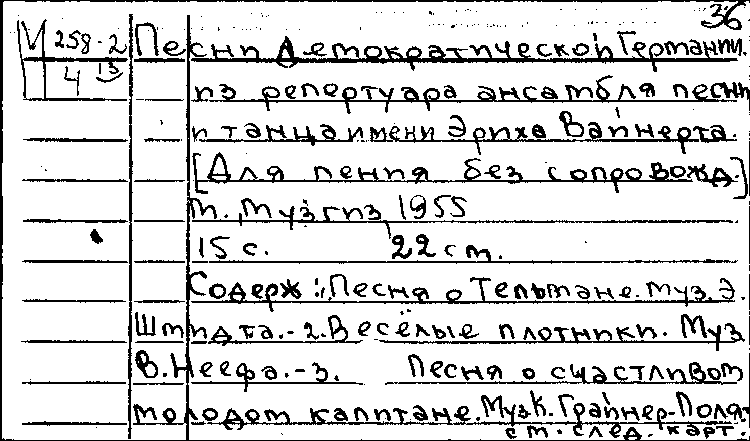 36
М 258-2 Песни Демократической Германии.
4 13 из репертуара ансамбля песни
и танца имени Эриха Вайнерта.
[Для пения без сопровожд.]
М., Музгиз, 1955
15 с. 22 см.
Содерж: 1. Песня о Тельмане. Муз. Э.
Шмидта.-2. Весёлые плотники. Муз
В. Неефа.-3. Песня о счастливом
молодом капитане. Муз К. Грайнер-Поля-
см. след. карт.